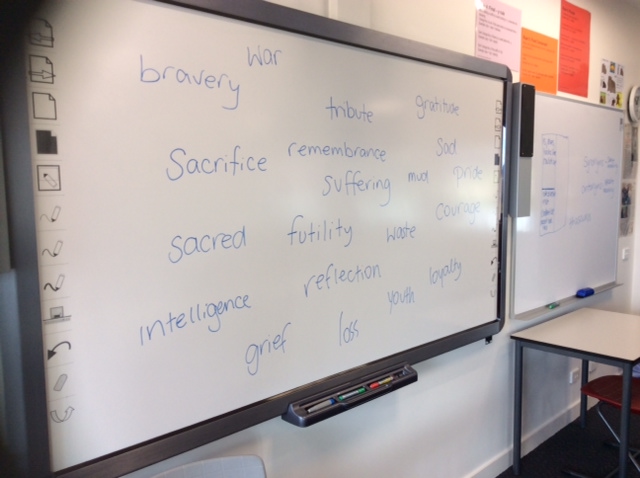 war
bravery
tribute gratitude
Sacrifice remembrance Sad
suffering mud pride
sacred futility waste courage
reflection loyalty
intelligence youth
grief loss